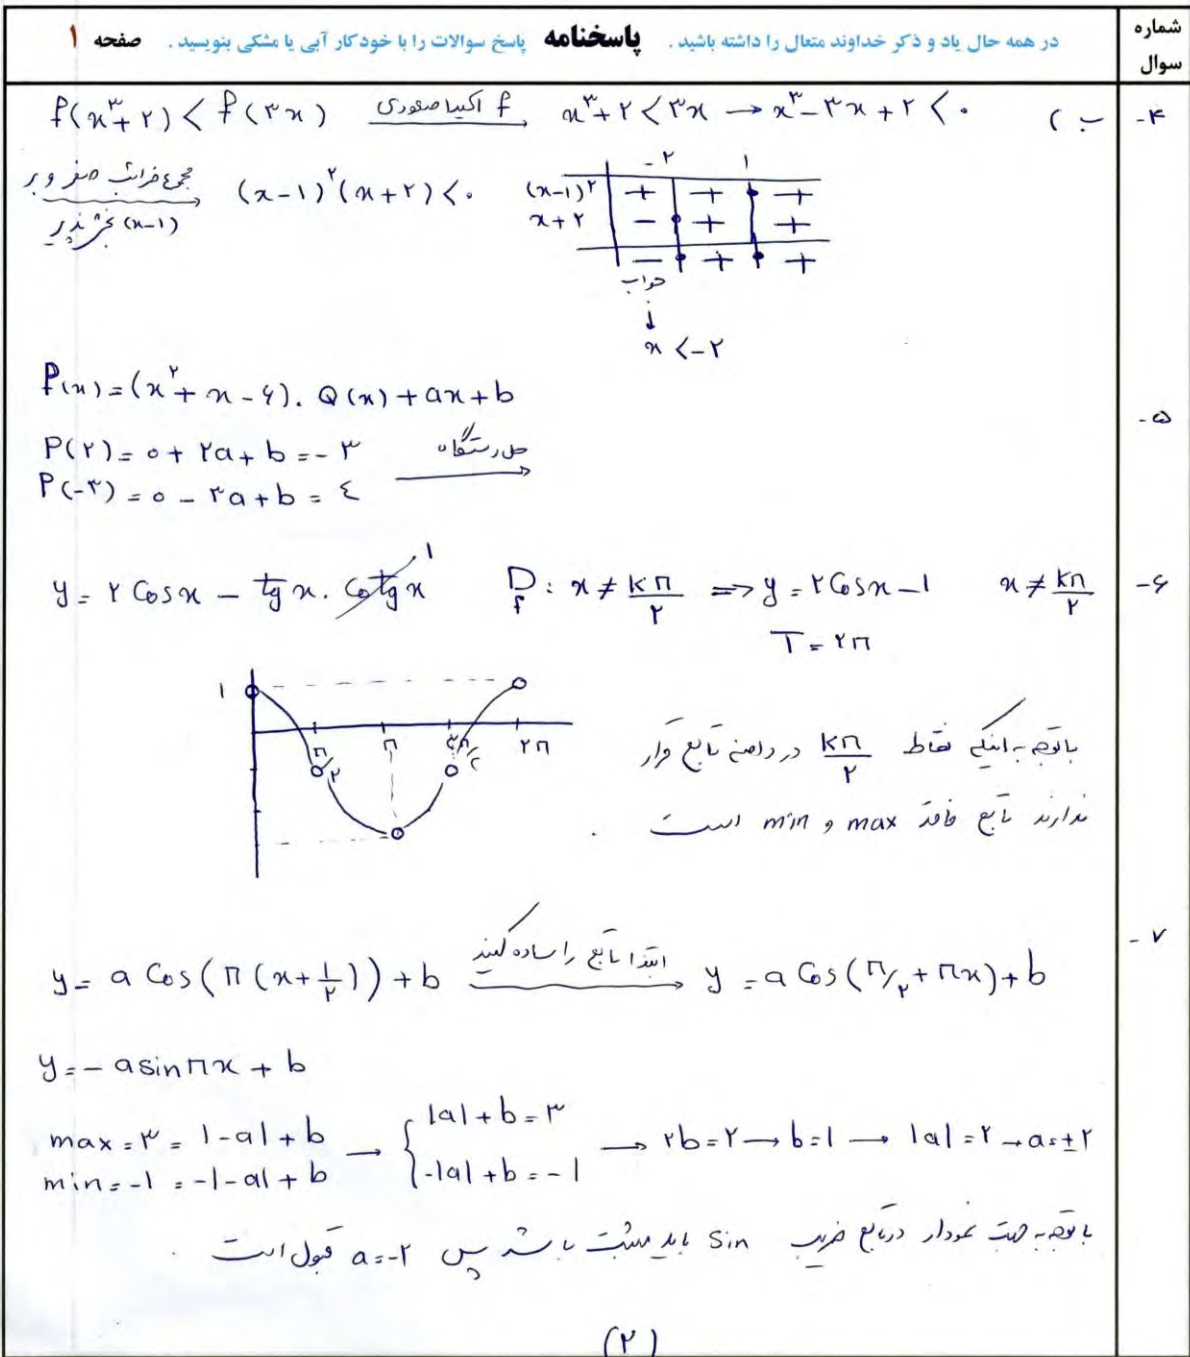 شماره سوال
در همه حال یاد و ذکر خداوند متعال را داشته باشید . پاسخنامه پاسخ سوالات را با خودکار آبی یا مشکی بنویسید . صفحه ۱
۴- ب ) f(x³+۲) < f(۳x) f اکیدا صعودی → x³+۲ < ۳x → x³-۳x+۲ < ۰
مجموع ضرائب صفر و بر (x-۱) بخش پذیر → (x-۱)²(x+۲) < ۰
-۲ ۱
(x-۱)² + + +
x+۲ - + +
- + +
جواب
↓
x < -۲
۵-
P(x) = (x²+x-۶). Q(x) + ax+b
P(۲) = ۰ + ۲a + b = -۳ حل دستگاه →
P(-۳) = ۰ - ۳a + b = ۴
۶- y = ۲Cosx - tgx. Cotgx ۱ D_f : x ≠ kπ/۲ ⇒ y = ۲Cosx-۱ x ≠ kπ/۲
T = ۲π
۱ π/۲ π ۳π/۲ ۲π
باتوجه به اینکه نقاط kπ/۲ در دامنه تابع قرار
ندارند تابع فاقد max و min است .
۷-
y = a Cos(π(x+۱/۲)) + b ابتدا تابع را ساده کنید → y = a Cos(π/۲+πx)+b
y = -a sinπx + b
max = ۳ = |-a| + b → { |a| + b = ۳ → ۲b=۲ → b=۱ → |a| = ۲ → a=±۲
min = -۱ = -|-a| + b -|a| + b = -۱
باتوجه به جهت نمودار در تابع ضریب Sin باید مثبت باشد پس a=-۲ قبول است .
(۲)